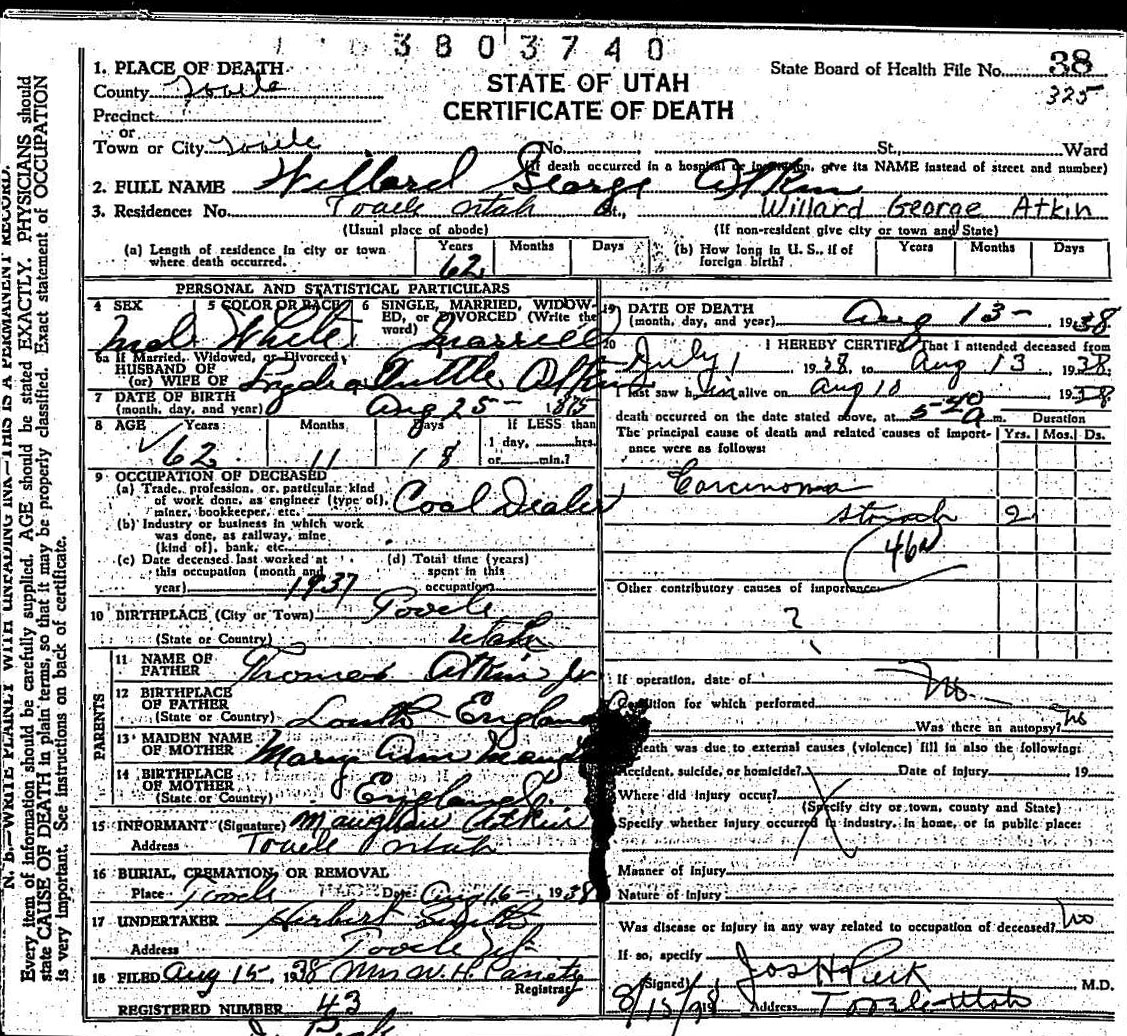 3803740
1. PLACE OF DEATH
STATE OF UTAH
State Board of Health File No. 38
325
County Tooele
CERTIFICATE OF DEATH
Precinct
or
Town or City Tooele No. St., Ward
(If death occurred in a hospital or institution, give its NAME instead of street and number)
2. FULL NAME Willard George Atkin
3. Residence: No. Tooele Utah St., Willard George Atkin
(Usual place of abode) (If non-resident give city or town and State)
(a) Length of residence in city or town where death occurred. Years 62 Months Days
(b) How long in U. S., if of foreign birth? Years Months Days
PERSONAL AND STATISTICAL PARTICULARS
4 SEX 5 COLOR OR RACE 6 SINGLE, MARRIED, WIDOW-
ED, or DIVORCED (Write the
word)
White Married
6a If Married, Widowed, or Divorced
HUSBAND OF
(or) WIFE OF Lydia Tuttle Atkin
7 DATE OF BIRTH
(month, day, and year) Aug 25 - 1875
8 AGE Years Months Days If LESS than
1 day, hrs.
or min.?
62 11 18
9 OCCUPATION OF DECEASED
(a) Trade, profession, or particular kind
of work done, as engineer (type of),
miner, bookkeeper, etc. Coal Dealer
(b) Industry or business in which work
was done, as railway, mine
(kind of), bank, etc.
(c) Date deceased last worked at
this occupation (month and
year) 1937
(d) Total time (years)
spent in this
occupation
10 BIRTHPLACE (City or Town) Tooele
(State or Country) Utah
PARENTS
11 NAME OF
FATHER Thomas Atkin Jr
12 BIRTHPLACE
OF FATHER
(State or Country) Louth England
13 MAIDEN NAME
OF MOTHER Mary Ann
14 BIRTHPLACE
OF MOTHER
(State or Country) England
15 INFORMANT (Signature) Maughan Atkin
Address Tooele Utah
16 BURIAL, CREMATION, OR REMOVAL
Place Tooele Date Aug 16 - 1938
17 UNDERTAKER Herbert
Address Tooele
18 FILED Aug 15, 1938 Mrs W. H.
Registrar
REGISTERED NUMBER 43
19 DATE OF DEATH
(month, day, and year) Aug 13 - 1938
20 I HEREBY CERTIFY That I attended deceased from
July 1 1938, to Aug 13 1938.
I last saw him alive on Aug 10 1938
death occurred on the date stated above, at 5-20 a m.
Duration
The principal cause of death and related causes of import-
ance were as follows:
Yrs. Mos. Ds.
Carcinoma
stomach 2
46
Other contributory causes of importance:
?
If operation, date of no
Condition for which performed
Was there an autopsy? no
death was due to external causes (violence) fill in also the following:
Accident, suicide, or homicide? Date of injury 19
Where did injury occur?
(Specify city or town, county and State)
Specify whether injury occurred in industry, in home, or in public place:
Manner of Injury
Nature of Injury
Was disease or injury in any way related to occupation of deceased? no
If so, specify
(Signed) Jos H Peck M.D.
8/15/38 Address Tooele Utah
N. B.—WRITE PLAINLY WITH UNFADING INK—THIS IS A PERMANENT RECORD.
Every item of information should be carefully supplied. AGE should be stated EXACTLY. PHYSICIANS should
state CAUSE OF DEATH in plain terms, so that it may be properly classified. Exact statement of OCCUPATION
is very important. See instructions on back of certificate.